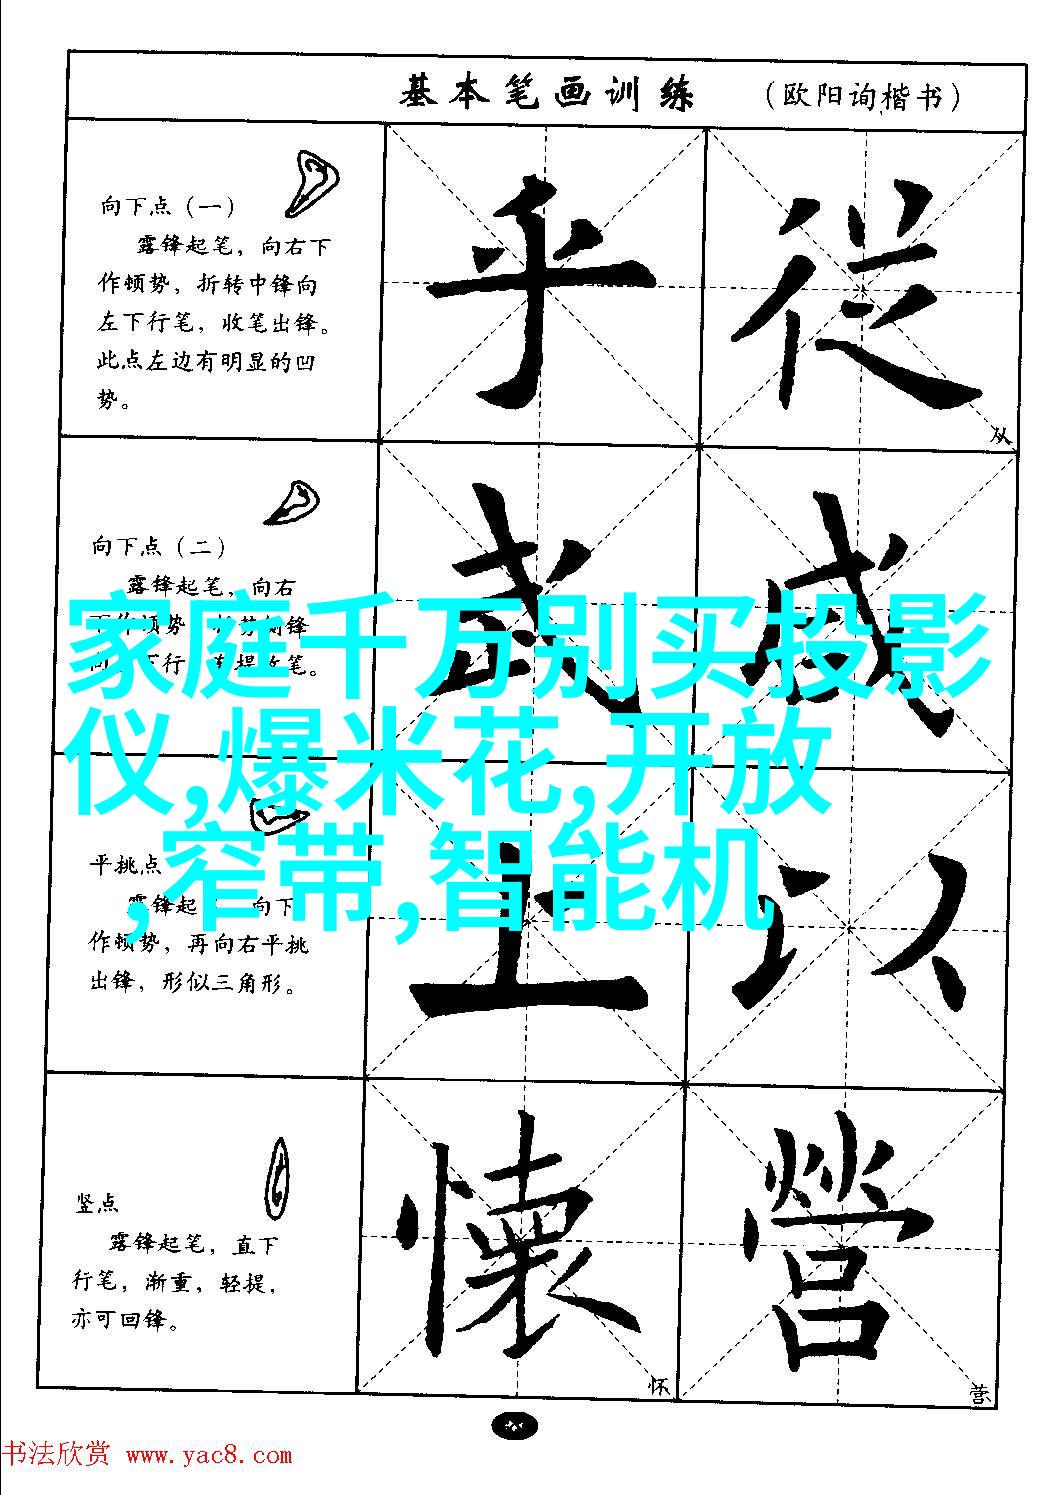 基本笔画训练 （欧阳询楷书）
向下点（一）
露锋起笔，向右下
作顿势，折转中锋向
左下行笔，收笔出锋。
此点左边有明显的凹
势。
乎 從
从
向下点（二）
露锋起笔，向右
家庭千万别买投影
仪,爆米花,开放
,窄带,智能机
武 咸
平挑点
露锋起 向下
作顿势，再向右平挑
出锋，形似三角形。
上 以
竖点
露锋起笔，直下
行笔，渐重，轻提，
亦可回锋。
懷 營
怀 营
书法欣赏 www.yac8.com